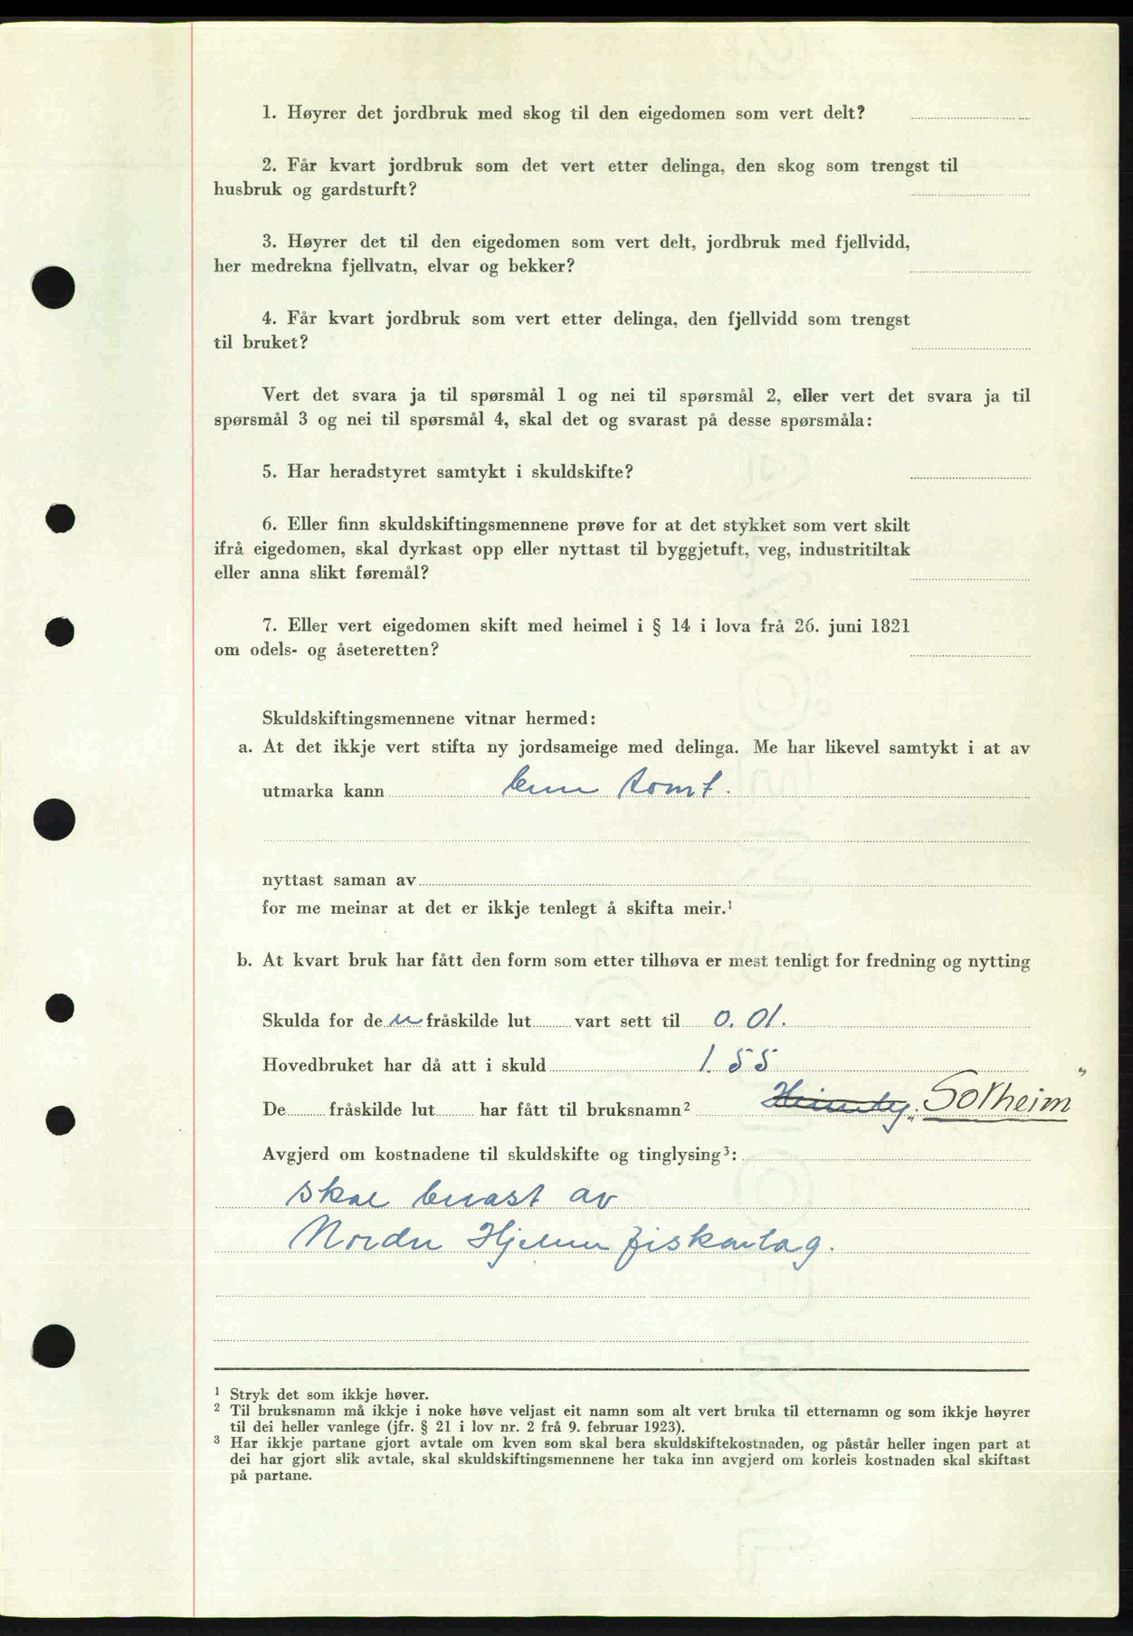 1. Høyrer det jordbruk med skog til den eigedomen som vert delt?
2. Får kvart jordbruk som det vert etter delinga, den skog som trengst til
husbruk og gardsturft?
3. Høyrer det til den eigedomen som vert delt, jordbruk med fjellvidd,
her medrekna fjellvatn, elvar og bekker?
4. Får kvart jordbruk som vert etter delinga, den fjellvidd som trengst
til bruket?
Vert det svara ja til spørsmål 1 og nei til spørsmål 2, eller vert det svara ja til
spørsmål 3 og nei til spørsmål 4, skal det og svarast på desse spørsmåla:
5. Har heradstyret samtykt i skuldskifte?
6. Eller finn skuldskiftingsmennene prøve for at det stykket som vert skilt
ifrå eigedomen, skal dyrkast opp eller nyttast til byggjetuft, veg, industritiltak
eller anna slikt føremål?
7. Eller vert eigedomen skift med heimel i § 14 i lova frå 26. juni 1821
om odels- og åseteretten?
Skuldskiftingsmennene vitnar hermed:
a. At det ikkje vert stifta ny jordsameige med delinga. Me har likevel samtykt i at av
utmarka kann tomt.
nyttast saman av
for me meinar at det er ikkje tenlegt å skifta meir.¹
b. At kvart bruk har fått den form som etter tilhøva er mest tenligt for fredning og nytting
Skulda for de n fråskilde lut vart sett til 0.01.
Hovedbruket har då att i skuld 1.55
De fråskilde lut har fått til bruksnamn² „Solheim”
Avgjerd om kostnadene til skuldskifte og tinglysing³:
skal av
Nordre fiskarlag.
¹ Stryk det som ikkje høver.
² Til bruksnamn må ikkje i noke høve veljast eit namn som alt vert bruka til etternamn og som ikkje høyrer
til dei heller vanlege (jfr. § 21 i lov nr. 2 frå 9. februar 1923).
³ Har ikkje partane gjort avtale om kven som skal bera skuldskiftekostnaden, og påstår heller ingen part at
dei har gjort slik avtale, skal skuldskiftingsmennene her taka inn avgjerd om korleis kostnaden skal skiftast
på partane.